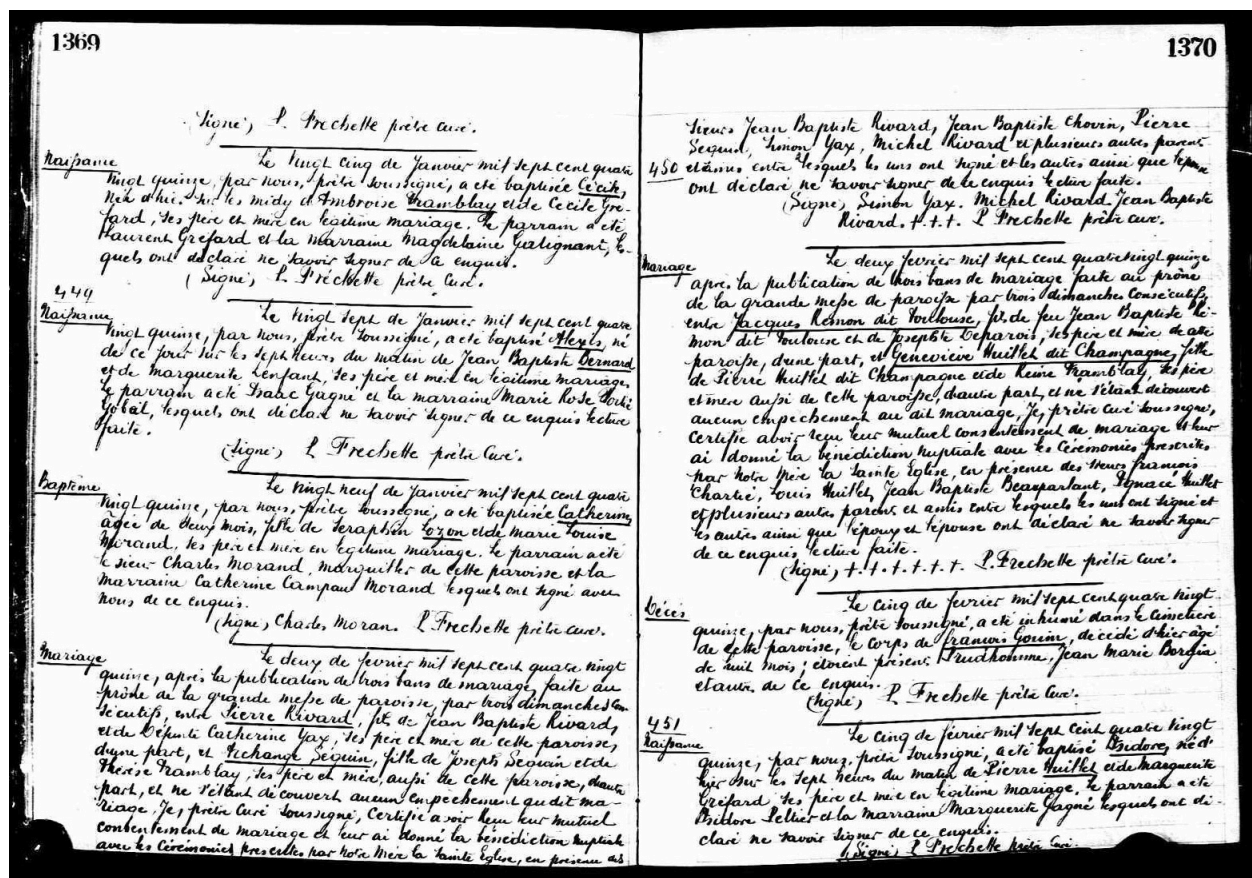 1369
(Signé) L. Frechette prêtre Curé.
Naissance
Le Vingt Cinq de Janvier mil sept cent quatre
Vingt quinze, par nous, prêtre soussigné, a eté baptisée Cécile,
Née d'hier sur les midy d'Ambroise Tramblay et de Cecile Gre-
fard, ses père et mère en légitime mariage. Le parrain a eté
Laurent Grefard et la marraine Magdelaine Galignant, les-
quels ont déclaré ne savoir signer de ce enquis.
(Signé) L. Fréchette prêtre Curé.
449
Naissance
Le Vingt Sept de Janvier mil sept cent quatre
Vingt quinze, par nous, prêtre soussigné, a eté baptisé Alexis, né
de ce jour sur les sept heures du matin de Jean Baptiste Bernard
et de Marguerite Lenfant, ses père et mère en légitime mariage,
le parrain a eté Isaac Gagné et la marraine Marie Rose
Gobeil, lesquels ont déclaré ne savoir signer de ce enquis lecture
faite.
(Signé) L Frechette prêtre Curé.
Baptême
Le Vingt neuf de Janvier mil sept cent quatre
Vingt quinze, par nous, prêtre soussigné, a eté baptisée Catherine,
âgée de deux mois, fille de Seraphin Lozon et de Marie Louise
Morand, ses père et mère en légitime mariage. Le parrain a eté
le sieur Charles Morand, marguiller de cette paroisse et la
marraine Catherine Campau Morand lesquels ont signé avec
nous de ce enquis.
(Signé) Charles Moran. L Frechette prêtre Curé.
Mariage
Le deux de fevrier mil sept cent quatre vingt
quinze, après la publication de trois bans de mariage, faite au
prône de la grande messe de paroisse, par trois dimanches Con-
sécutifs, entre Pierre Rivard, fils de Jean Baptiste Rivard,
et de Défunte Catherine Yax, ses père et mère de cette paroisse,
d'une part, et Archange Séguin, fille de Joseph Seguin et de
Thérèse Tramblay, ses père et mère, aussi de cette paroisse, d'autre
part, et ne s'étant découvert aucun empechement au dit ma-
riage. Je, prêtre Curé soussigné, Certifie avoir reçu leur mutuel
consentement de mariage et leur ai donné la bénédiction Nuptiale
avec les Cérémonies prescrites par notre Mère la Sainte Eglise, en présence des
1370
Sieurs Jean Baptiste Rivard, Jean Baptiste Chovin, Pierre
Seguin, Simon Yax, Michel Rivard et plusieurs autres parents
450
et amis entre lesquels les uns ont signé et les autres ainsi que l'épouse
ont déclaré ne savoir signer de ce enquis lecture faite.
(Signé) Simon Yax. Michel Rivard Jean Baptiste
Rivard. +. +. +. L Frechette prêtre curé.
Mariage
Le deux fevrier mil sept cent quatre vingt quinze
apres la publication de trois bans de mariage faite au prône
de la grande messe de paroisse par trois dimanches Consécutifs,
entre Jacques Remon dit Toulouse, fils de feu Jean Baptiste Ré-
mon dit Toulouse et de Josephte Deparois, ses père et mère de cette
paroisse, d'une part, et Geneviève Huillet dit Champagne, fille
de Pierre Huillet dit Champagne et de Reine Tramblay, ses père
et mère aussi de cette paroisse, d'autre part, et ne s'étant découvert
aucun empechement au dit mariage, Je, prêtre Curé soussigné,
Certifie avoir reçu leur mutuel consentement de mariage et leur
ai donné la bénédiction Nuptiale avec les Cérémonies prescrites
par Notre Mère la Sainte Eglise, en présence des sieurs francois
Chartié, Louis Huillet, Jean Baptiste Beaupartant, Ignace Huillet
et plusieurs autres parents et amis entre lesquels les uns ont signé et
les autres ainsi que l'époux et l'épouse ont déclaré ne savoir signer
de ce enquis lecture faite.
(Signé) +. +. +. +. +. +. L. Frechette prêtre Curé.
Décès
Le Cinq de fevrier mil sept cent quatre vingt
quinze, par nous, prêtre soussigné, a eté inhumé dans le Cimetière
de cette paroisse, le corps de francois Gouin, décédé d'hier âgé
de huit mois; étoient présent Prudhomme, Jean Marie Borgia
et autre de ce enquis.
(Signé) L Frechette prêtre Curé.
451
Naissance
Le Cinq de février mil sept cent quatre Vingt
quinze, par nouz, prêtre soussigné, a eté baptisé Isidore, né d'
hier sur les sept heures du matin de Pierre Huillet et de Marguerite
Gréfard ses père et mère en légitime mariage, le parrain a eté
Isidore Peltier et la Marraine Marguerite Gagné lesquels ont dé-
claré ne savoir signer de ce enquis.
(Signé) L Frechette prêtre Curé.